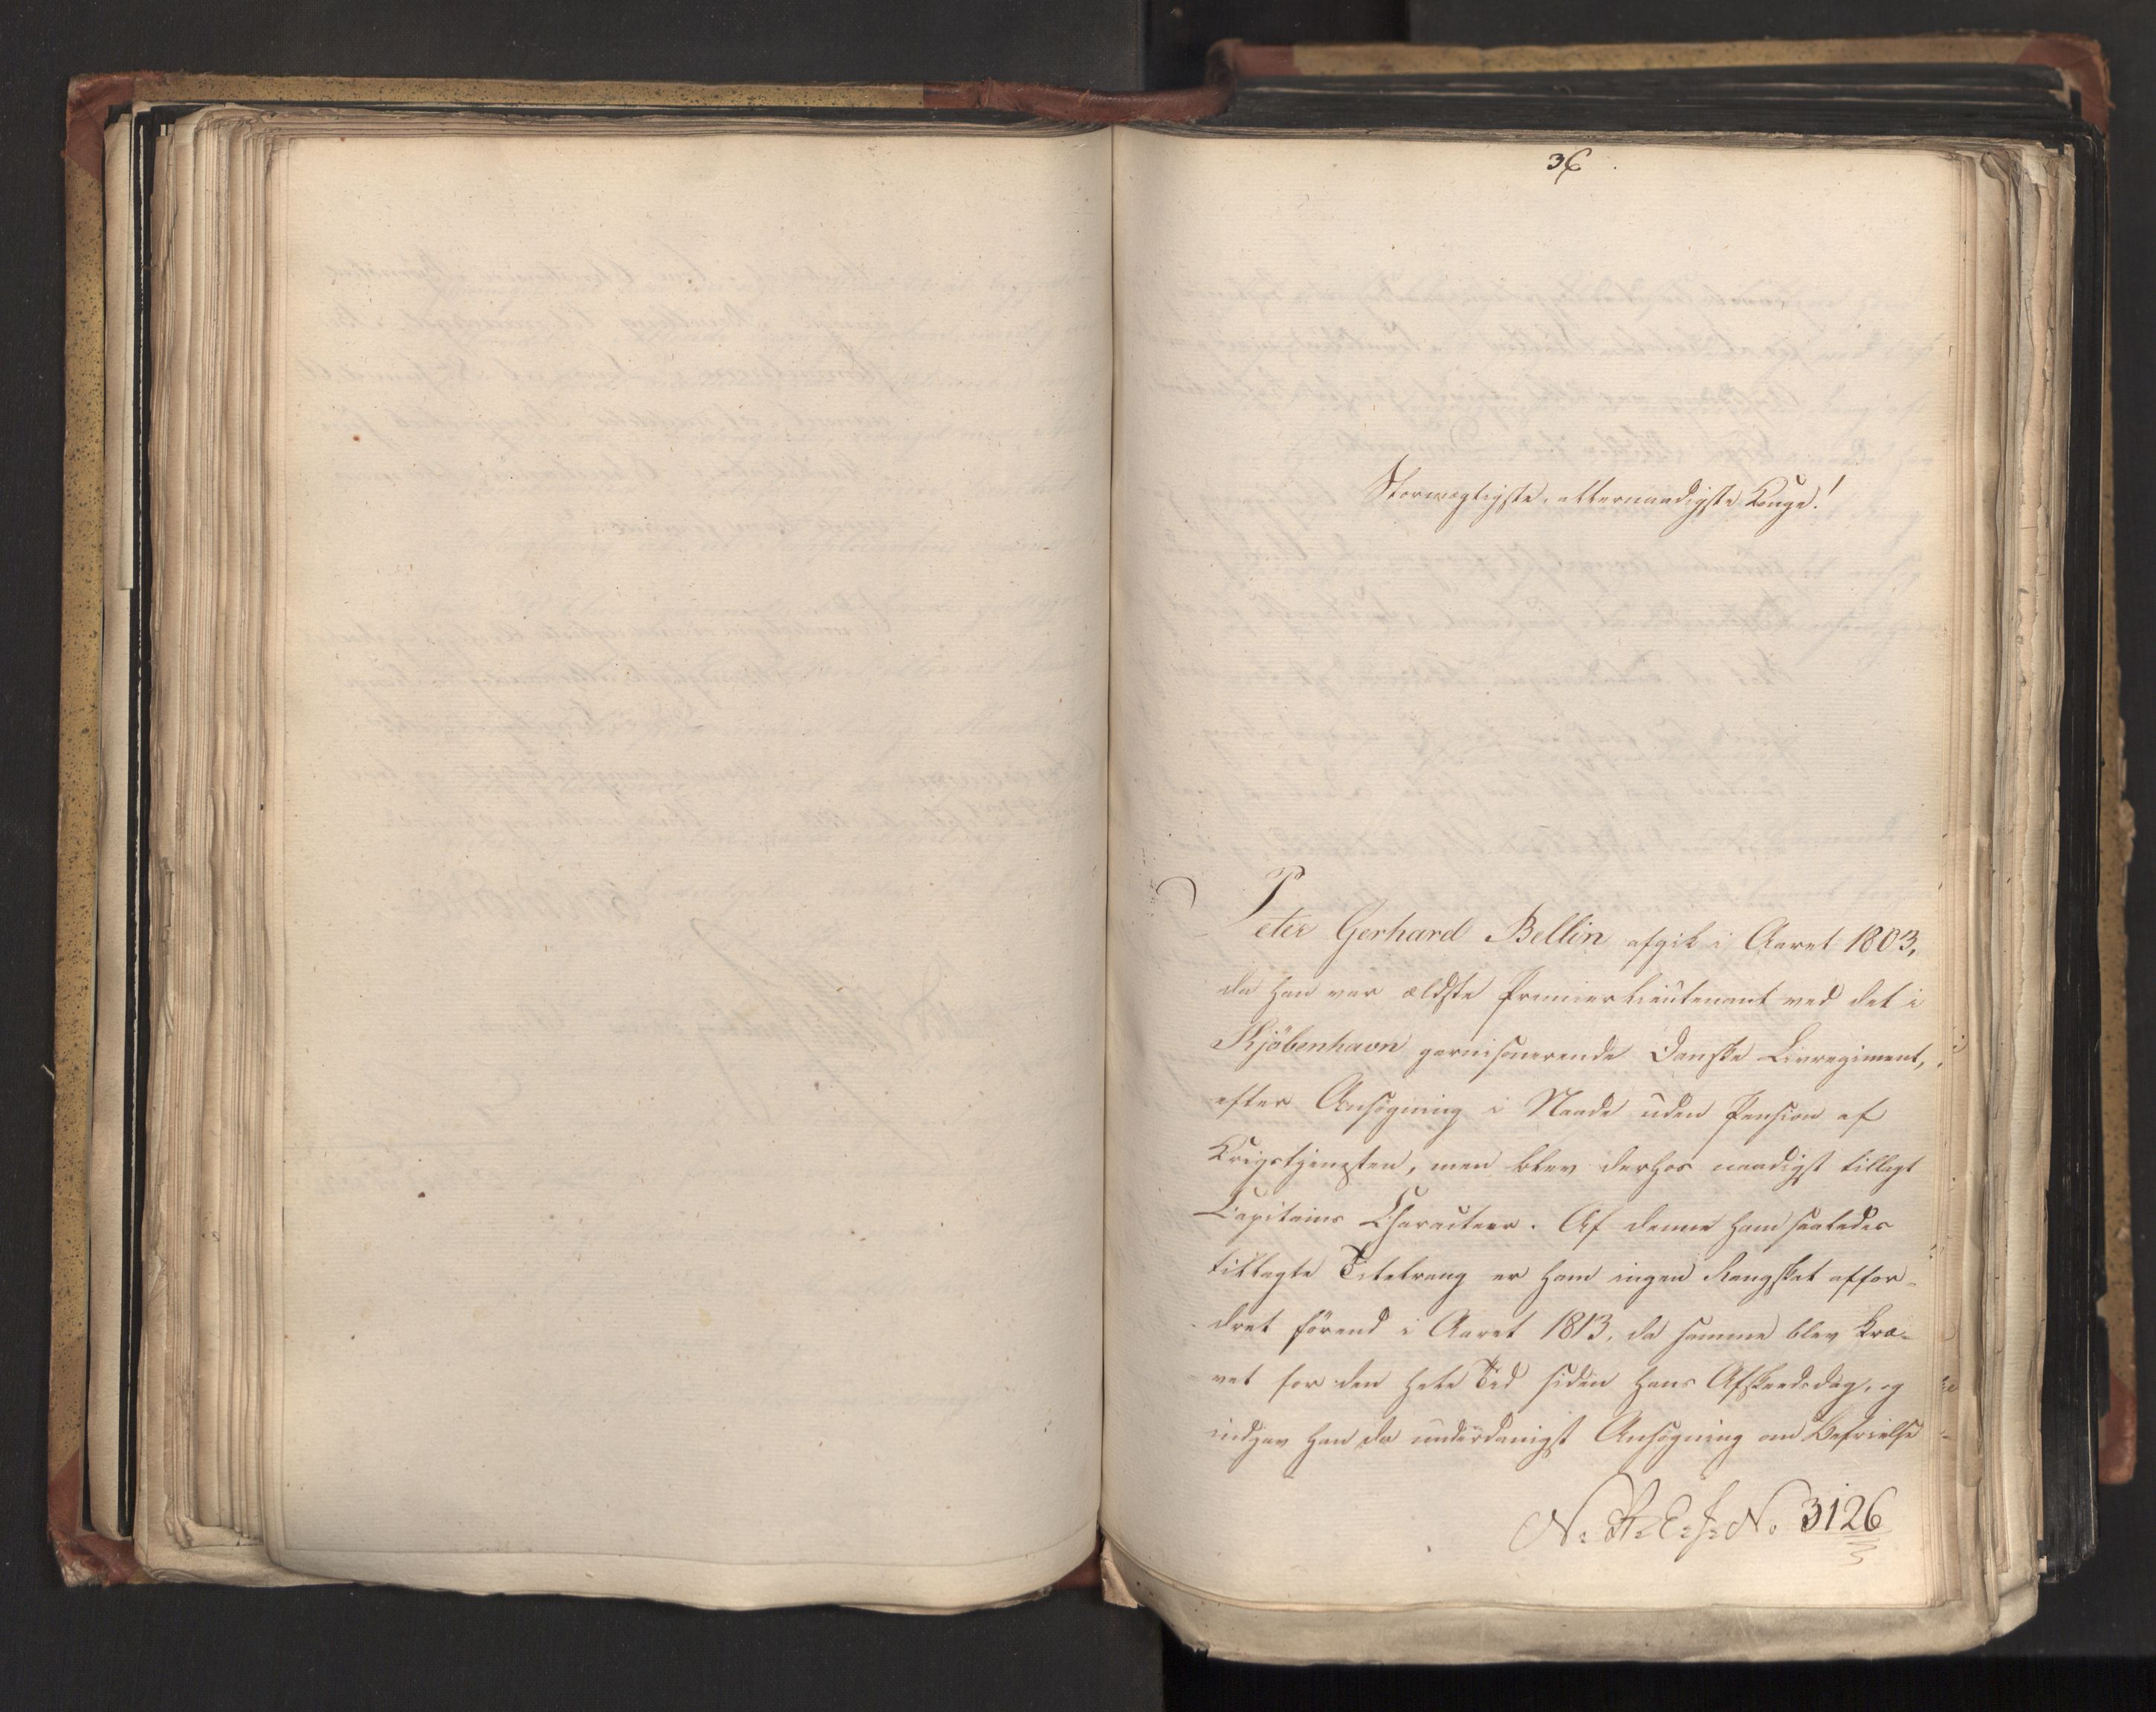 36
Stormægtigste, allernaadigste Konge!
Peter Gerhard Bellin afgik i Aaret 1803,
da han var ældste Premierlieutenant ved det i
Kjöbenhavn garnisonerende Danske Livregiment,
efter Ansögning i Naade uden Pension af
Krigstjenesten, men blev derhos naadigst tillagt
Capitains Characteer. Af denne ham saaledes
tillagte Titelrang er ham ingen Rangskat affor-
dret förend i Aaret 1813, da samme blev kræ-
vet for den hele Tid siden hans Afskedsdag, og
indgav han da underdanigst Ansögning om Befrielse
N: R: C: J: No 3126